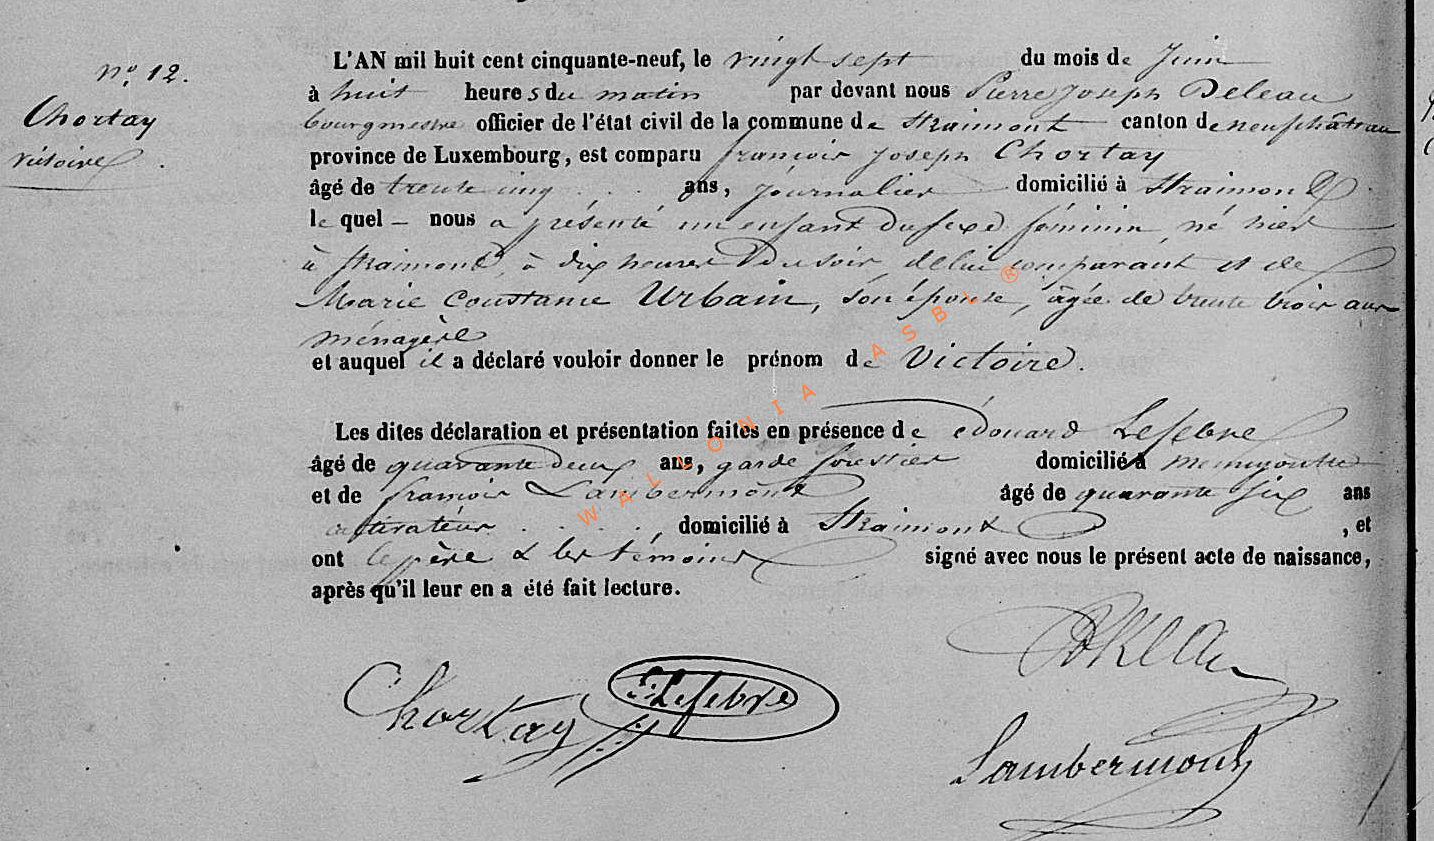 n° 12.
Chortay
Victoire
L'AN mil huit cent cinquante-neuf, le vingt sept du mois de Juin
à huit heures du matin par devant nous Pierre Joseph Deleau
bourgmestre officier de l'état civil de la commune de Straimont canton de neufchâteau
province de Luxembourg, est comparu françois Joseph Chortay
âgé de trente cinq ans, Journalier domicilié à Straimont
le quel nous a présenté un enfant du sexe féminin, né hier
à Straimont, à dix heures du soir, de lui comparant et de
Marie Constance Urbain, son épouse, âgée de trente trois ans
ménagère
et auquel il a déclaré vouloir donner le prénom de Victoire.
Les dites déclaration et présentation faites en présence de édouard Lefebvre
âgé de quarante deux ans, garde forestier domicilié à
et de françois Lambermont âgé de quarante six ans
cultivateur domicilié à Straimont, et
ont le père & les témoins signé avec nous le présent acte de naissance,
après qu'il leur en a été fait lecture.
Chortay
Lefebvre
Lambermont
WALLONIA ASBL ®